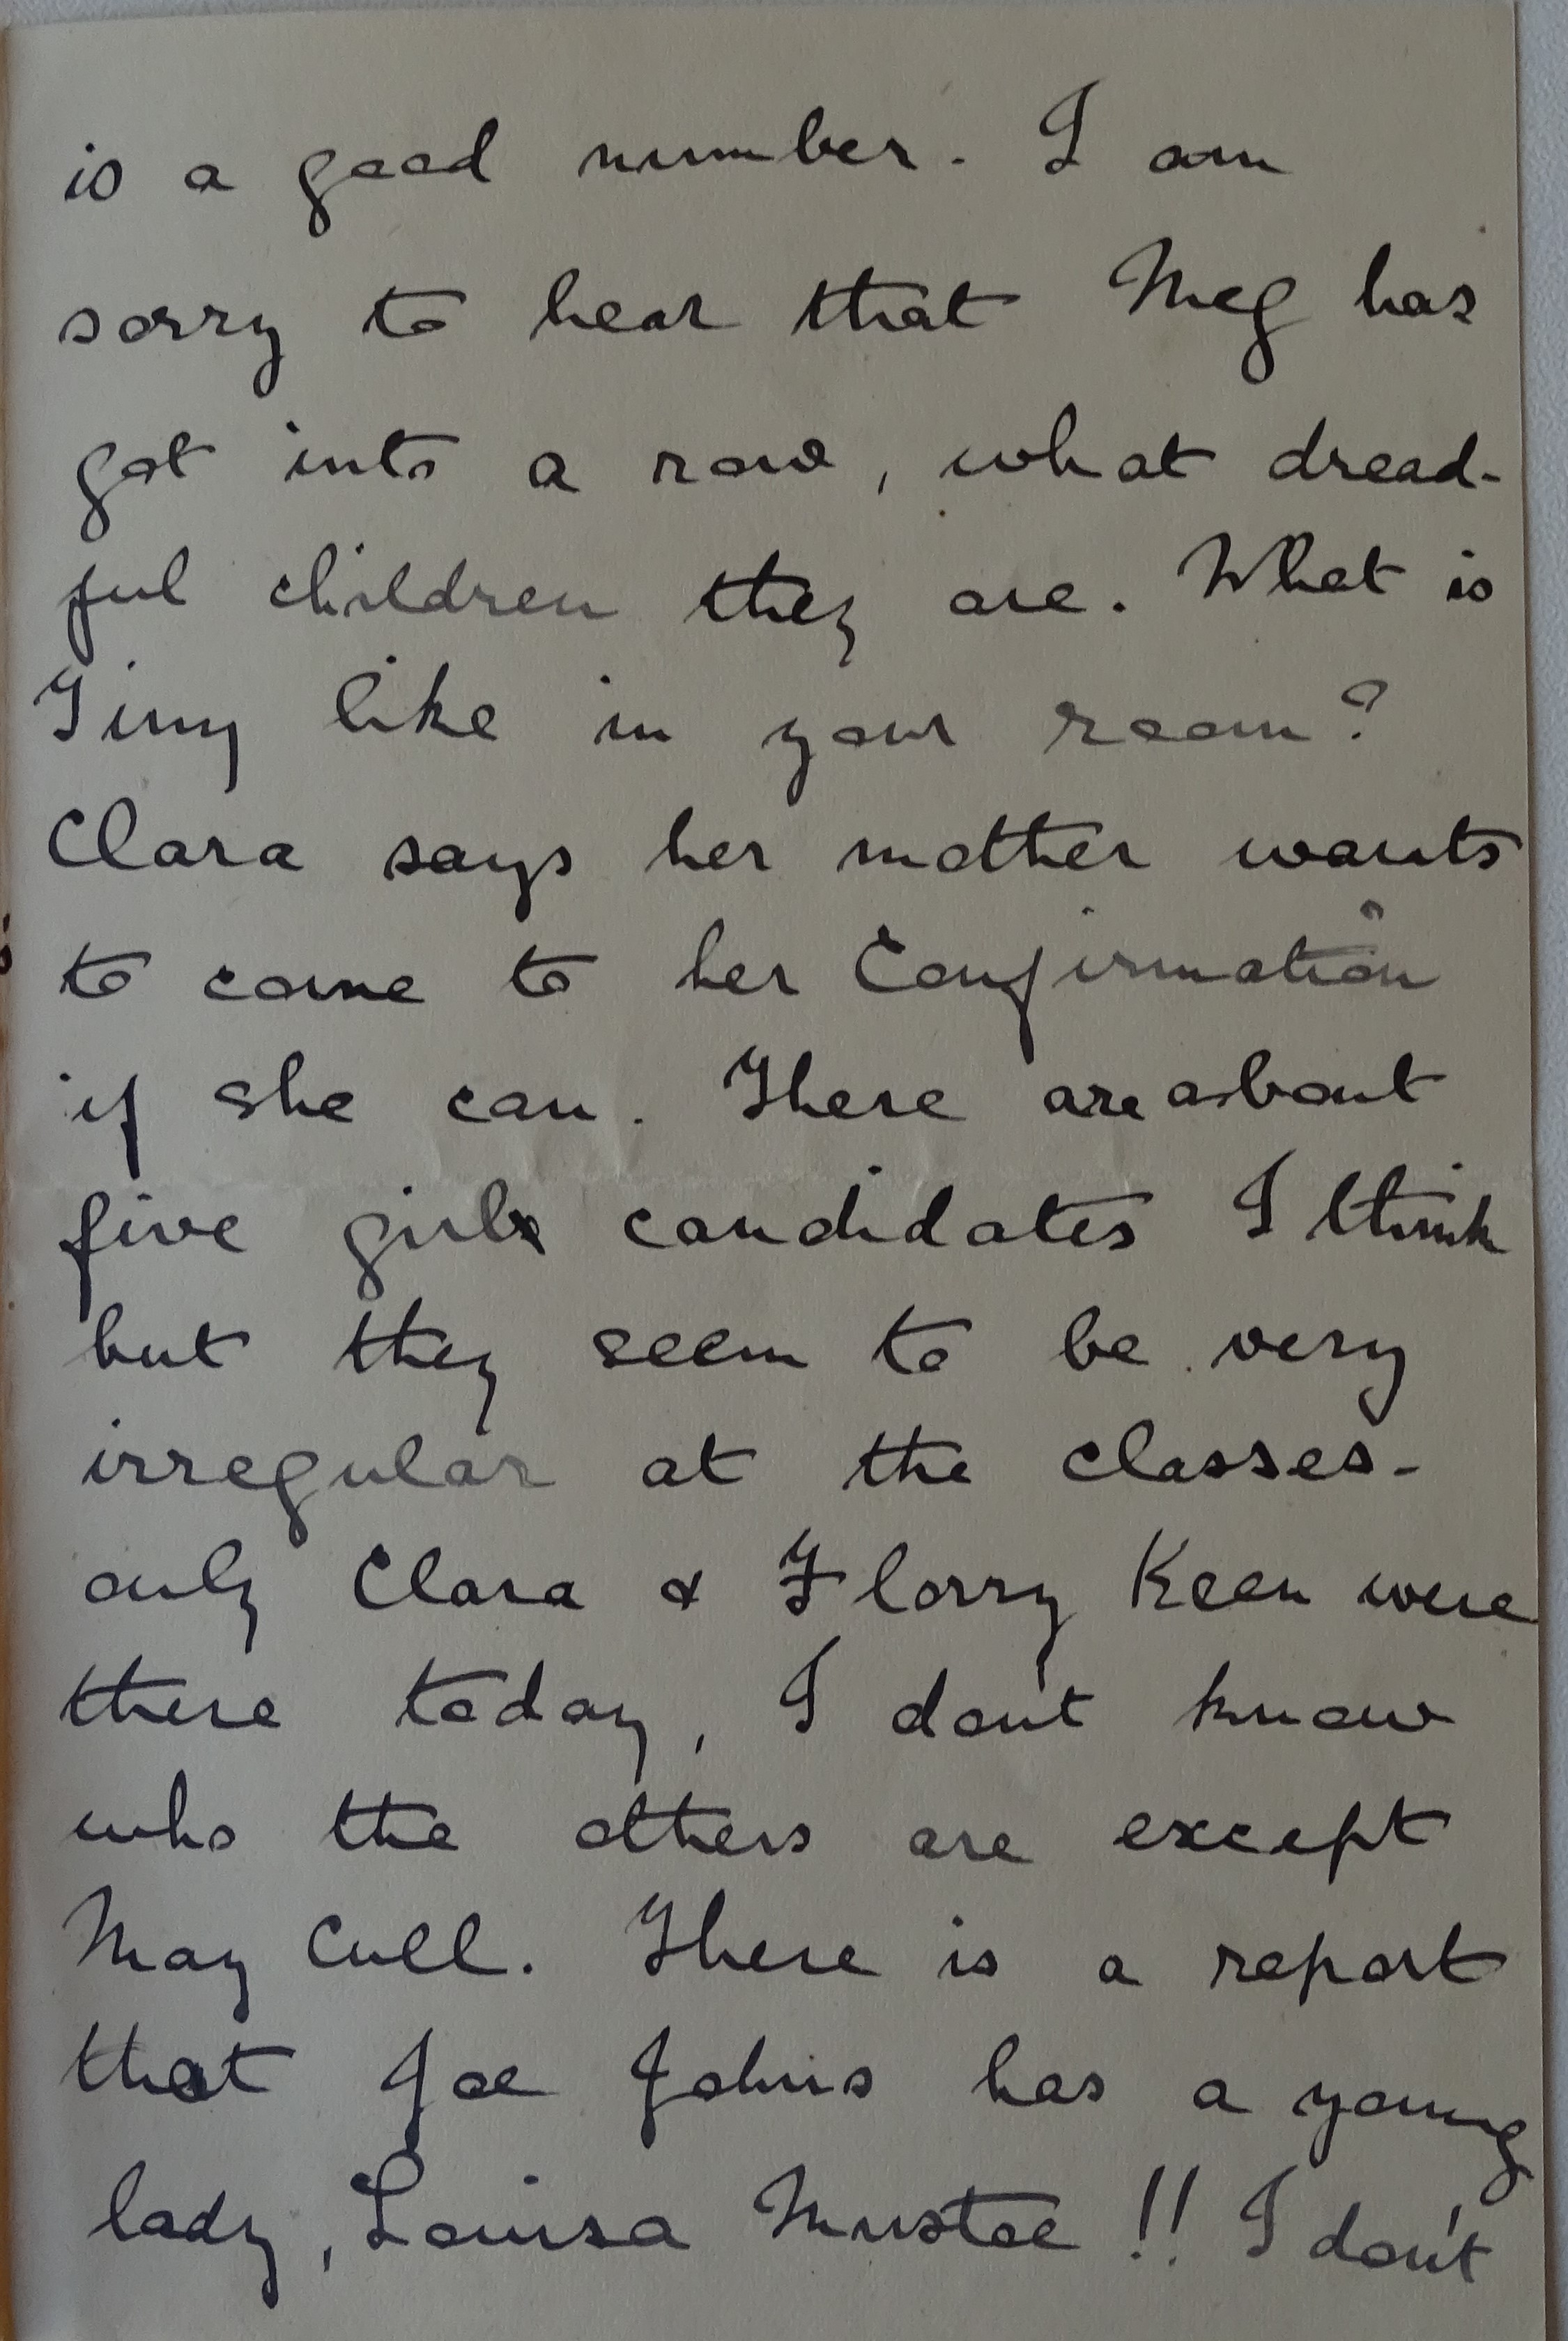 is a good number. I am
sorry to hear that Meg has
got into a row, what dread-
ful children they are. What is
Tiny like in your room?
Clara says her mother wants
to come to her Confirmation
if she can. There are about
five girls candidates I think
but they seem to be very
irregular at the classes -
only Clara & Florry Keen were
there today, I don't know
who the others are except
May Cull. There is a report
that Joe Johns has a young
lady, Louisa Mustoe!! I don't